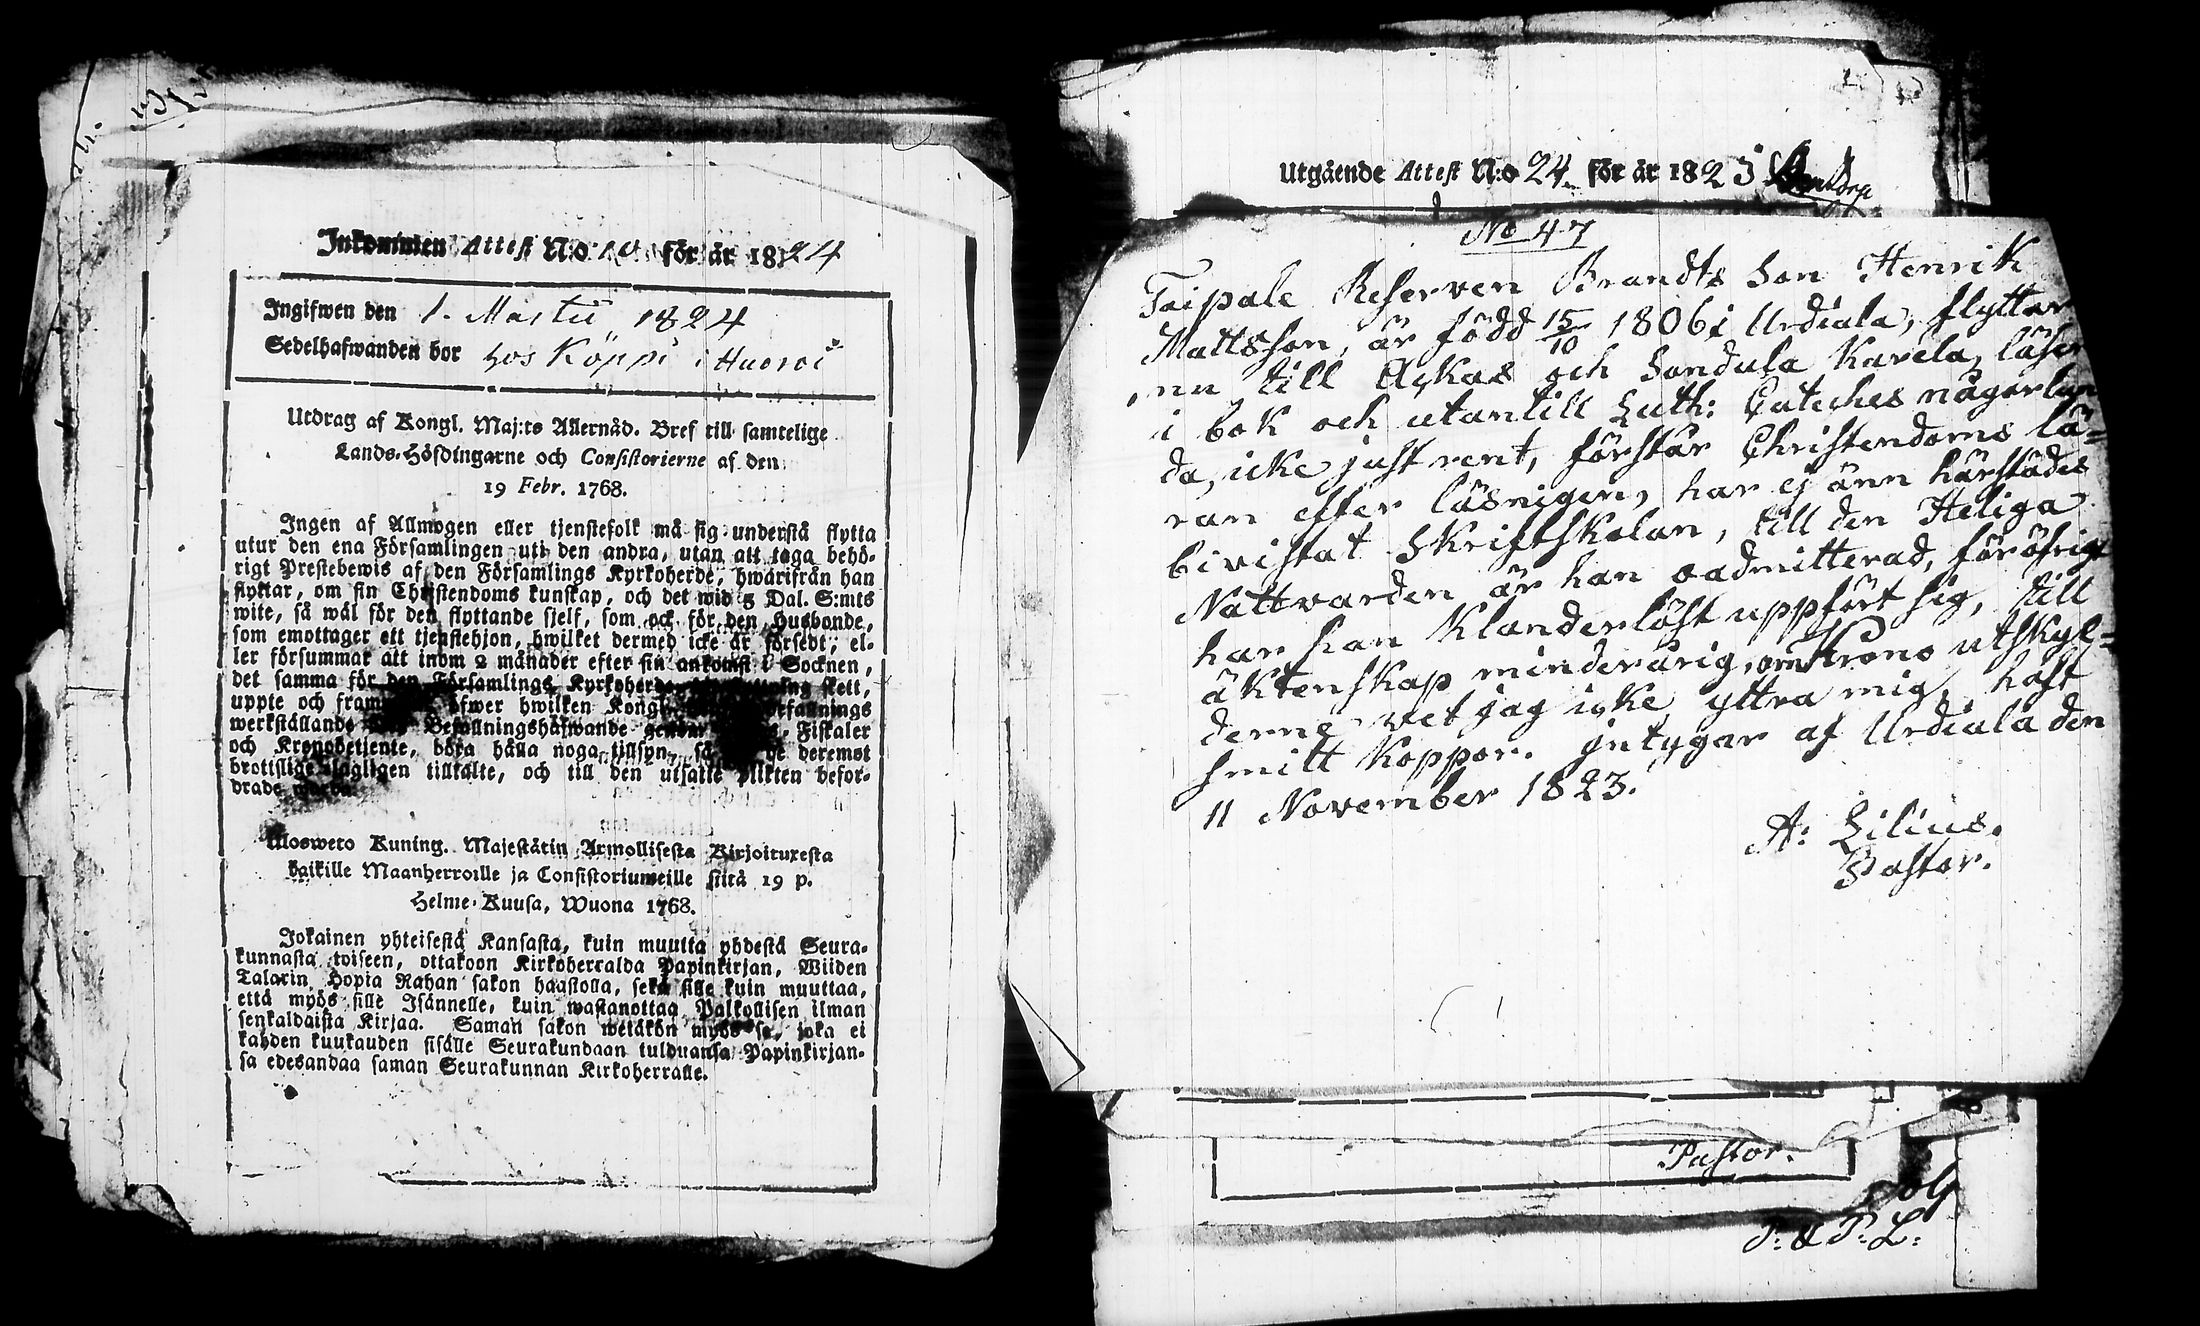 Inkommen Attest N:o för år 1824
Ingifwen den 1. Martii 1824
Sedelhafwanden bor hos Köppi i Huoroi
Utdrag af Kongl. Maj:ts Allernåd. Bref till samtelige
Lands-Höfdingarne och Consistorierne af den
19 Febr. 1768.
Ingen af Allmogen eller tjenstefolk må sig understå flytta
utur den ena Församlingen uti den andra, utan att taga behö-
rigt Prestebewis af den Församlings Kyrkoherde, hwarifrån han
flyttar, om sin Christendoms kunskap, och det wid 5 Dal. S:mts
wite, så wäl för den flyttande sjelf, som ock för den Husbonde,
som emottager ett tjenstehjon, hwilket dermed icke är försedt; el-
ler försummar att inom 2 månader efter sin ankomst i Socknen,
det samma för den Församlings Kyrkoherde, skett,
uppte och öfwer hwilken Kongl. Författnings
werkställande Befallningshafwande genom Fiskaler
och Kronobetjente, böra hålla noga tillsyn, deremot
brottslige lagligen tilltalte, och till den utsatte plikten befor-
drade warda.
Ulosweto Kuning. Majestätin Armollisesta Kirjoituxesta
kaikille Maanherroille ja Consistoriumeille siitä 19 p.
Helme-Kuusa, Wuona 1768.
Jokainen yhteisestä Kansasta, kuin muutta yhdestä Seura-
kunnasta toiseen, ottakoon Kirkoherralda Papinkirjan, Wiiden
Talarin Hopia Rahan sakon haastolla, sekä sille kuin muuttaa,
että myös sille Isännelle, kuin wastanottaa Palkollisen ilman
senkaldaista Kirjaa. Saman sakon wetäkön myös se, joka ei
kahden kuukauden sisälle Seurakundaan tulduansa Papinkirjan-
sa edesandaa saman Seurakunnan Kirkoherralle.
Utgående Attest N:o 24 för år 1823
No 47
Taipale Reserven Brandts Son Henrik
Mattsson, är född 15/10 1806 i Urdiala, flyttar
nu till Ackas och Sondula Karela, läser
i bok och utantill Luth: Cateches någorlun
da, icke just rent, förstår Christendoms lä=
ran efter läsnigen, har ej änn härstädes
bivistat Skriftskolan, till den Heliga
Nattvarden är han oadmitterad, föröfrigt
har han klanderlöst uppfört sig, till
äktenskap minderårig, om Krono utskyl=
derne vet jag icke yttra mig, haft
smitt koppor. intygar af Urdiala den
11 November 1823.
A: Lilius.
Pastor.
Pastor.
P: & P: L: